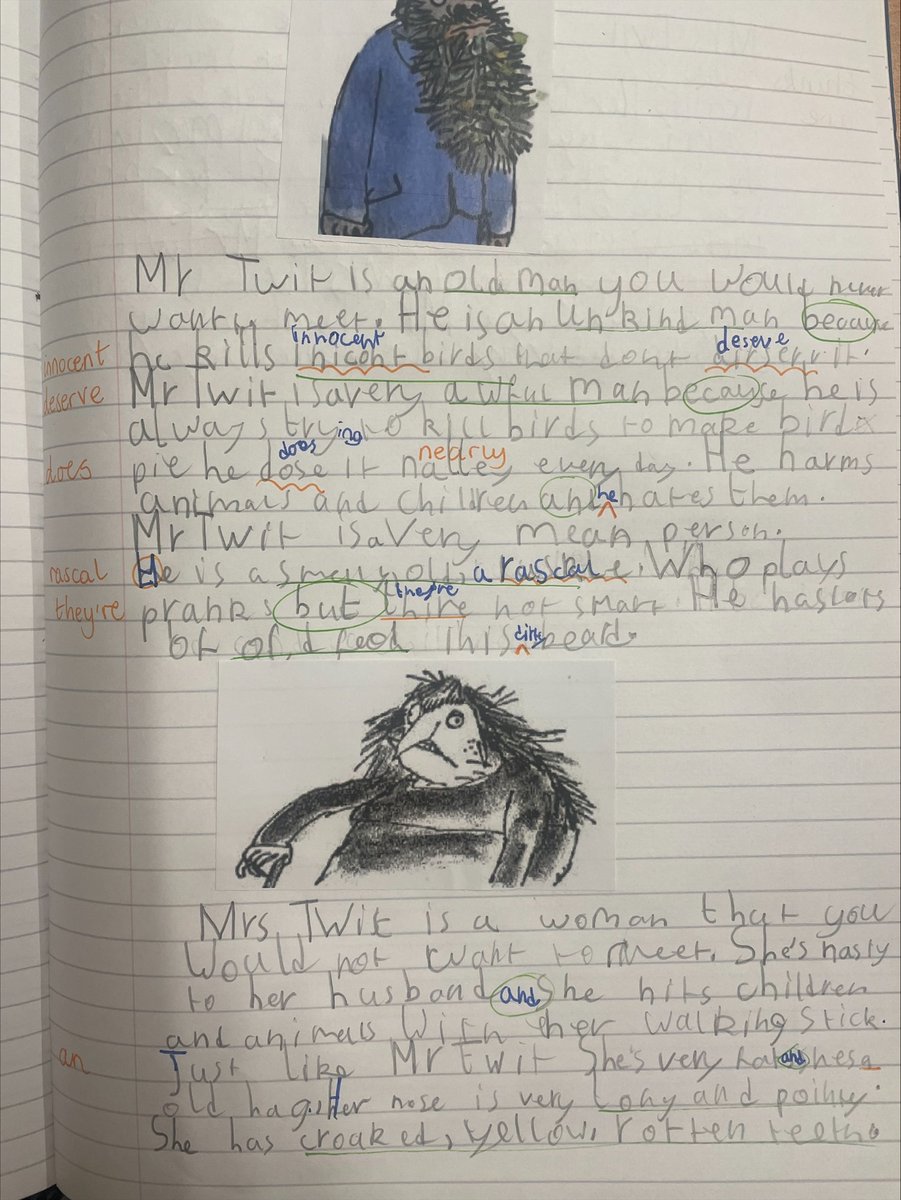 Mr Twit is an old man you would never
want to meet. He is an unkind man because
innocent deserve
innocent he kills inicont birds that dont it.
deserve Mr Twit is a very awful man because he is
always trying to kill birds to make bird
does nearly
does pie he dose it every day. He harms
animals and children and he hates them.
Mr Twit is a very mean person.
rascal He is a smelly old, a rascal. Who plays
they're pranks but thire they're not smart. He has lots
of old food in his dirty beard.
Mrs Twit is a woman that you
Would not want to meet. She's nasty
to her husband and She hits children
and animals With her walking stick.
an Just like Mr Twit She's very and shes a
old hag. Her nose is very long and pointy.
She has croaked, yellow, rotten teeth.